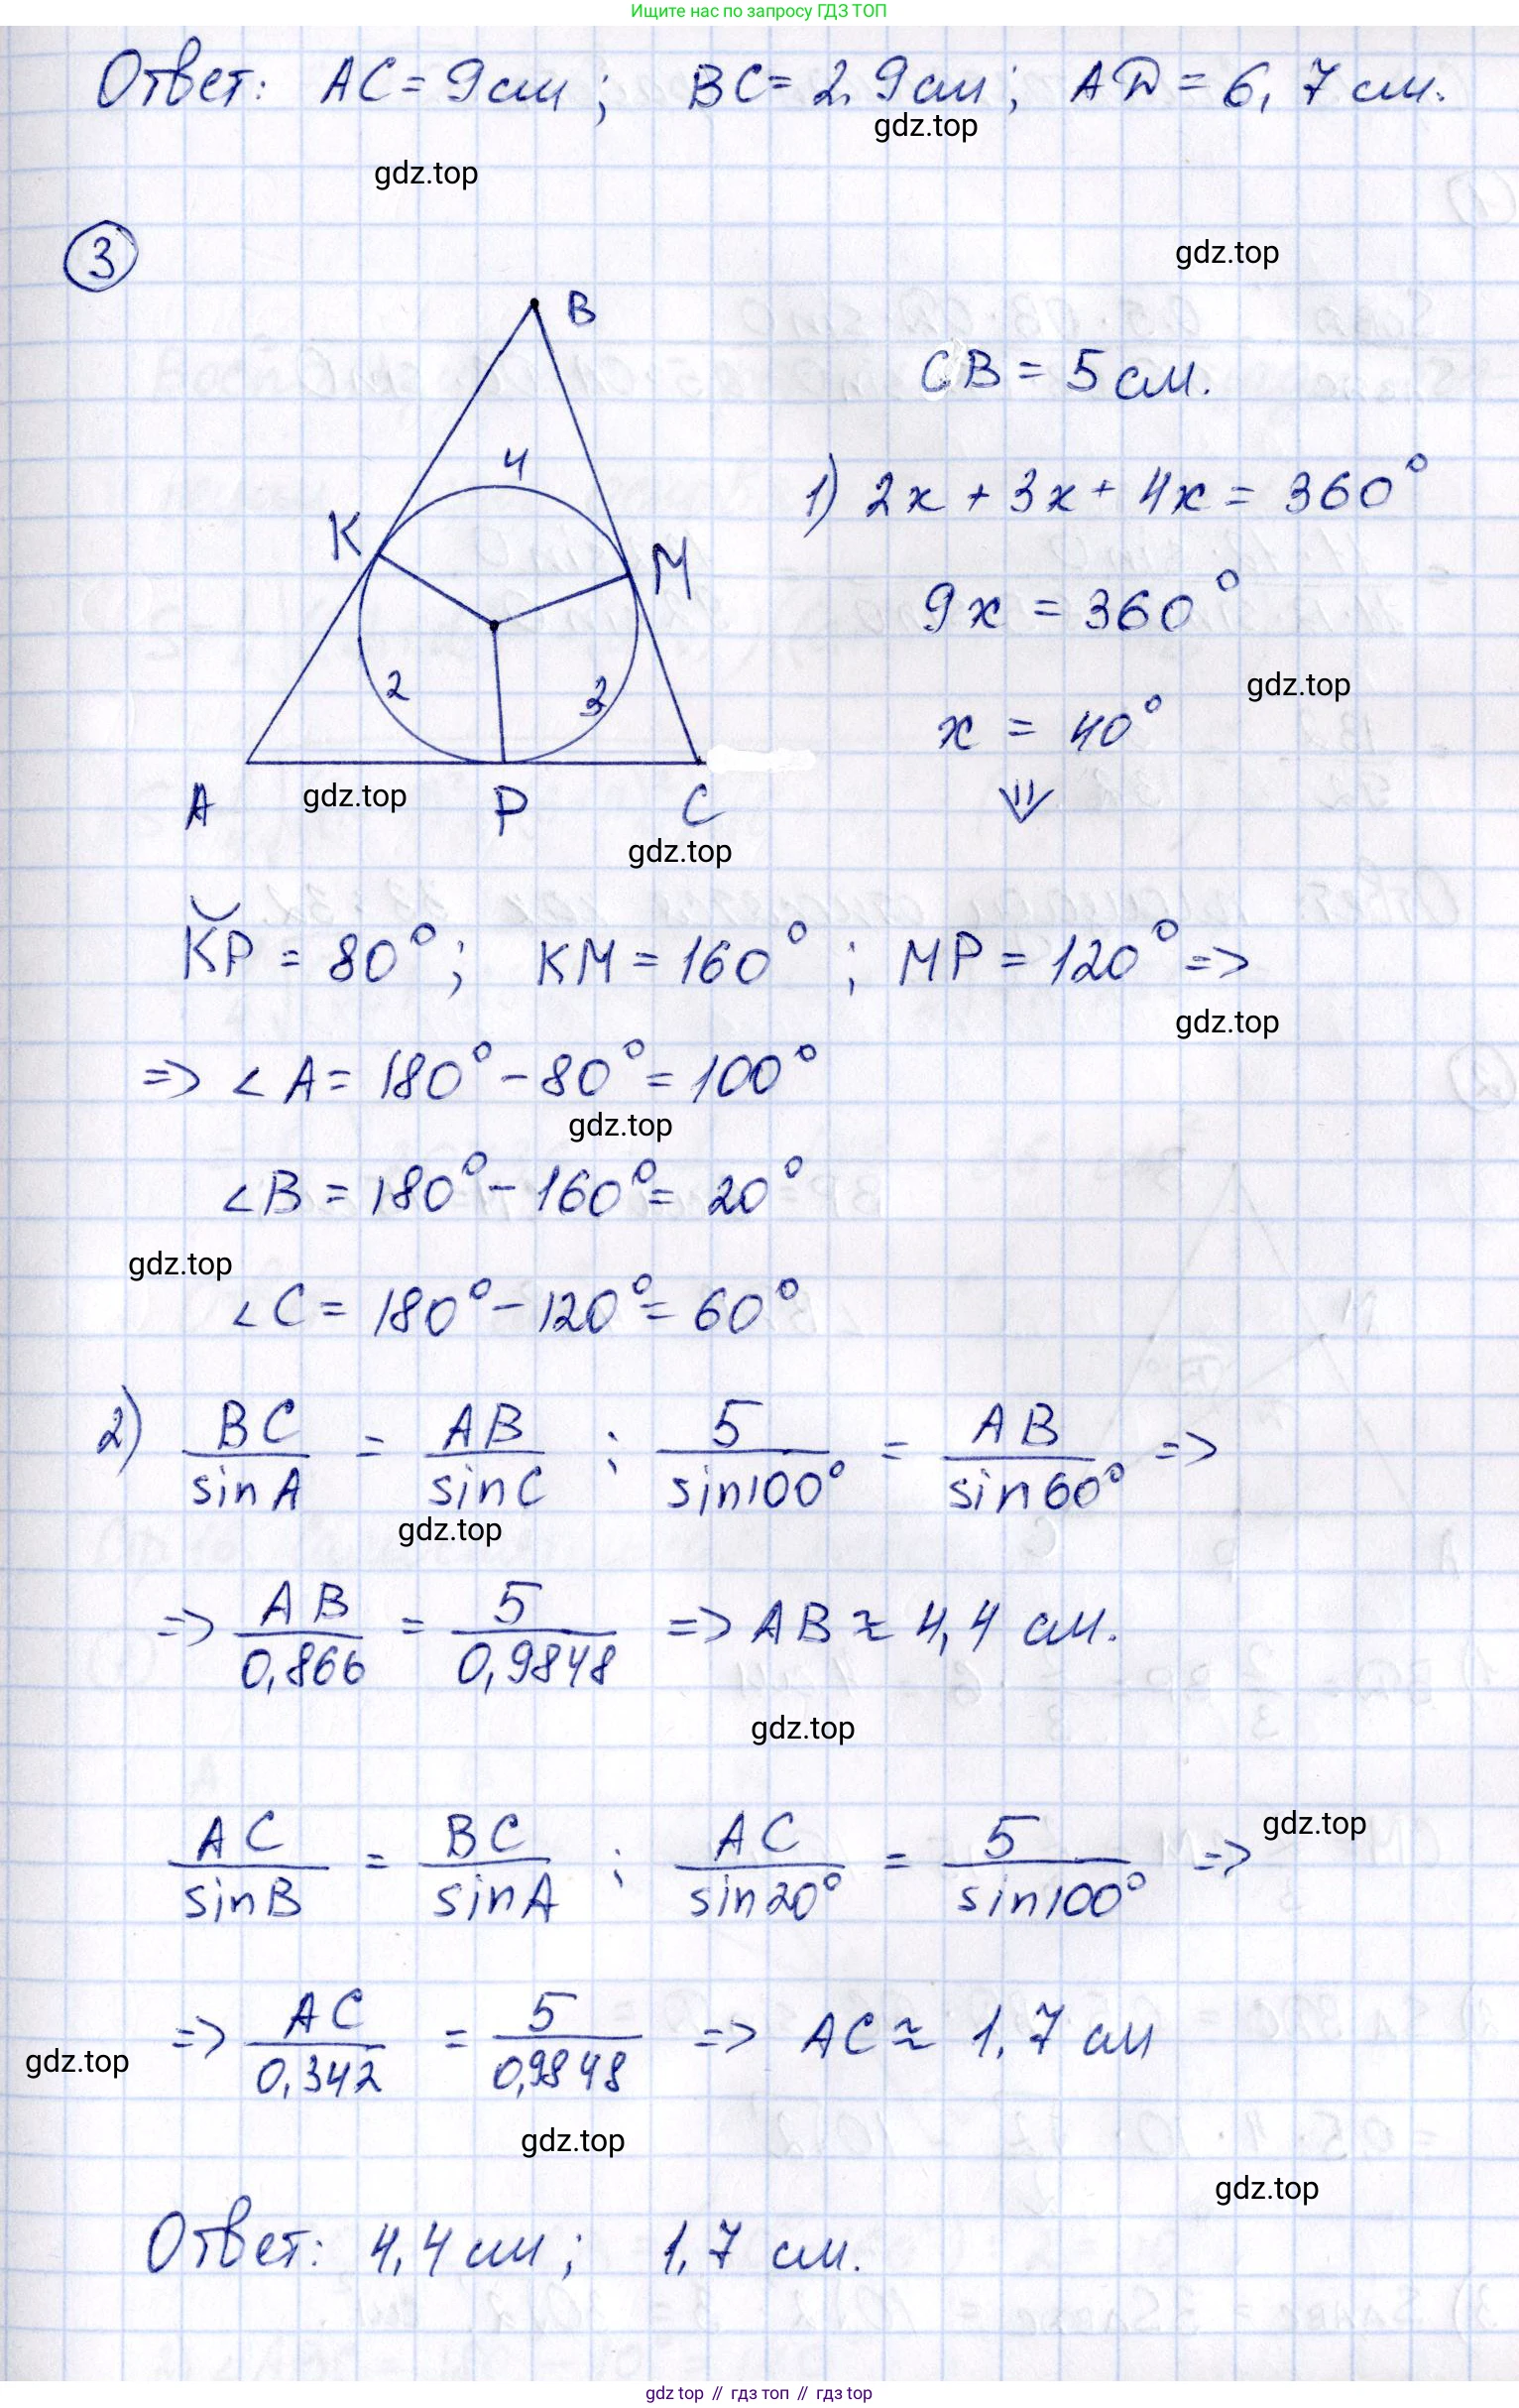 Ищите нас по запросу ГДЗ ТОП
Ответ: AC = 9 см; BC = 2,9 см; AD = 6,7 см.
gdz.top
gdz.top
3
gdz.top
B
CB = 5 см.
4
K
M
1) 2x + 3x + 4x = 360°
9x = 360°
2
3
gdz.top
x = 40°
⇓
A
gdz.top
P
C
gdz.top
KP = 80°; KM = 160°; MP = 120° =>
gdz.top
=> ∠A = 180° - 80° = 100°
gdz.top
∠B = 180° - 160° = 20°
gdz.top
∠C = 180° - 120° = 60°
2) BC/sinA = AB/sinC ; 5/sin100° = AB/sin60° =>
gdz.top
=> AB/0,866 = 5/0,9848 => AB ≈ 4,4 см.
gdz.top
gdz.top
AC/sinB = BC/sinA ; AC/sin20° = 5/sin100° =>
=> AC/0,342 = 5/0,9848 => AC ≈ 1,7 см
gdz.top
gdz.top
gdz.top
Ответ: 4,4 см; 1,7 см.
gdz top // гдз топ // гдз top